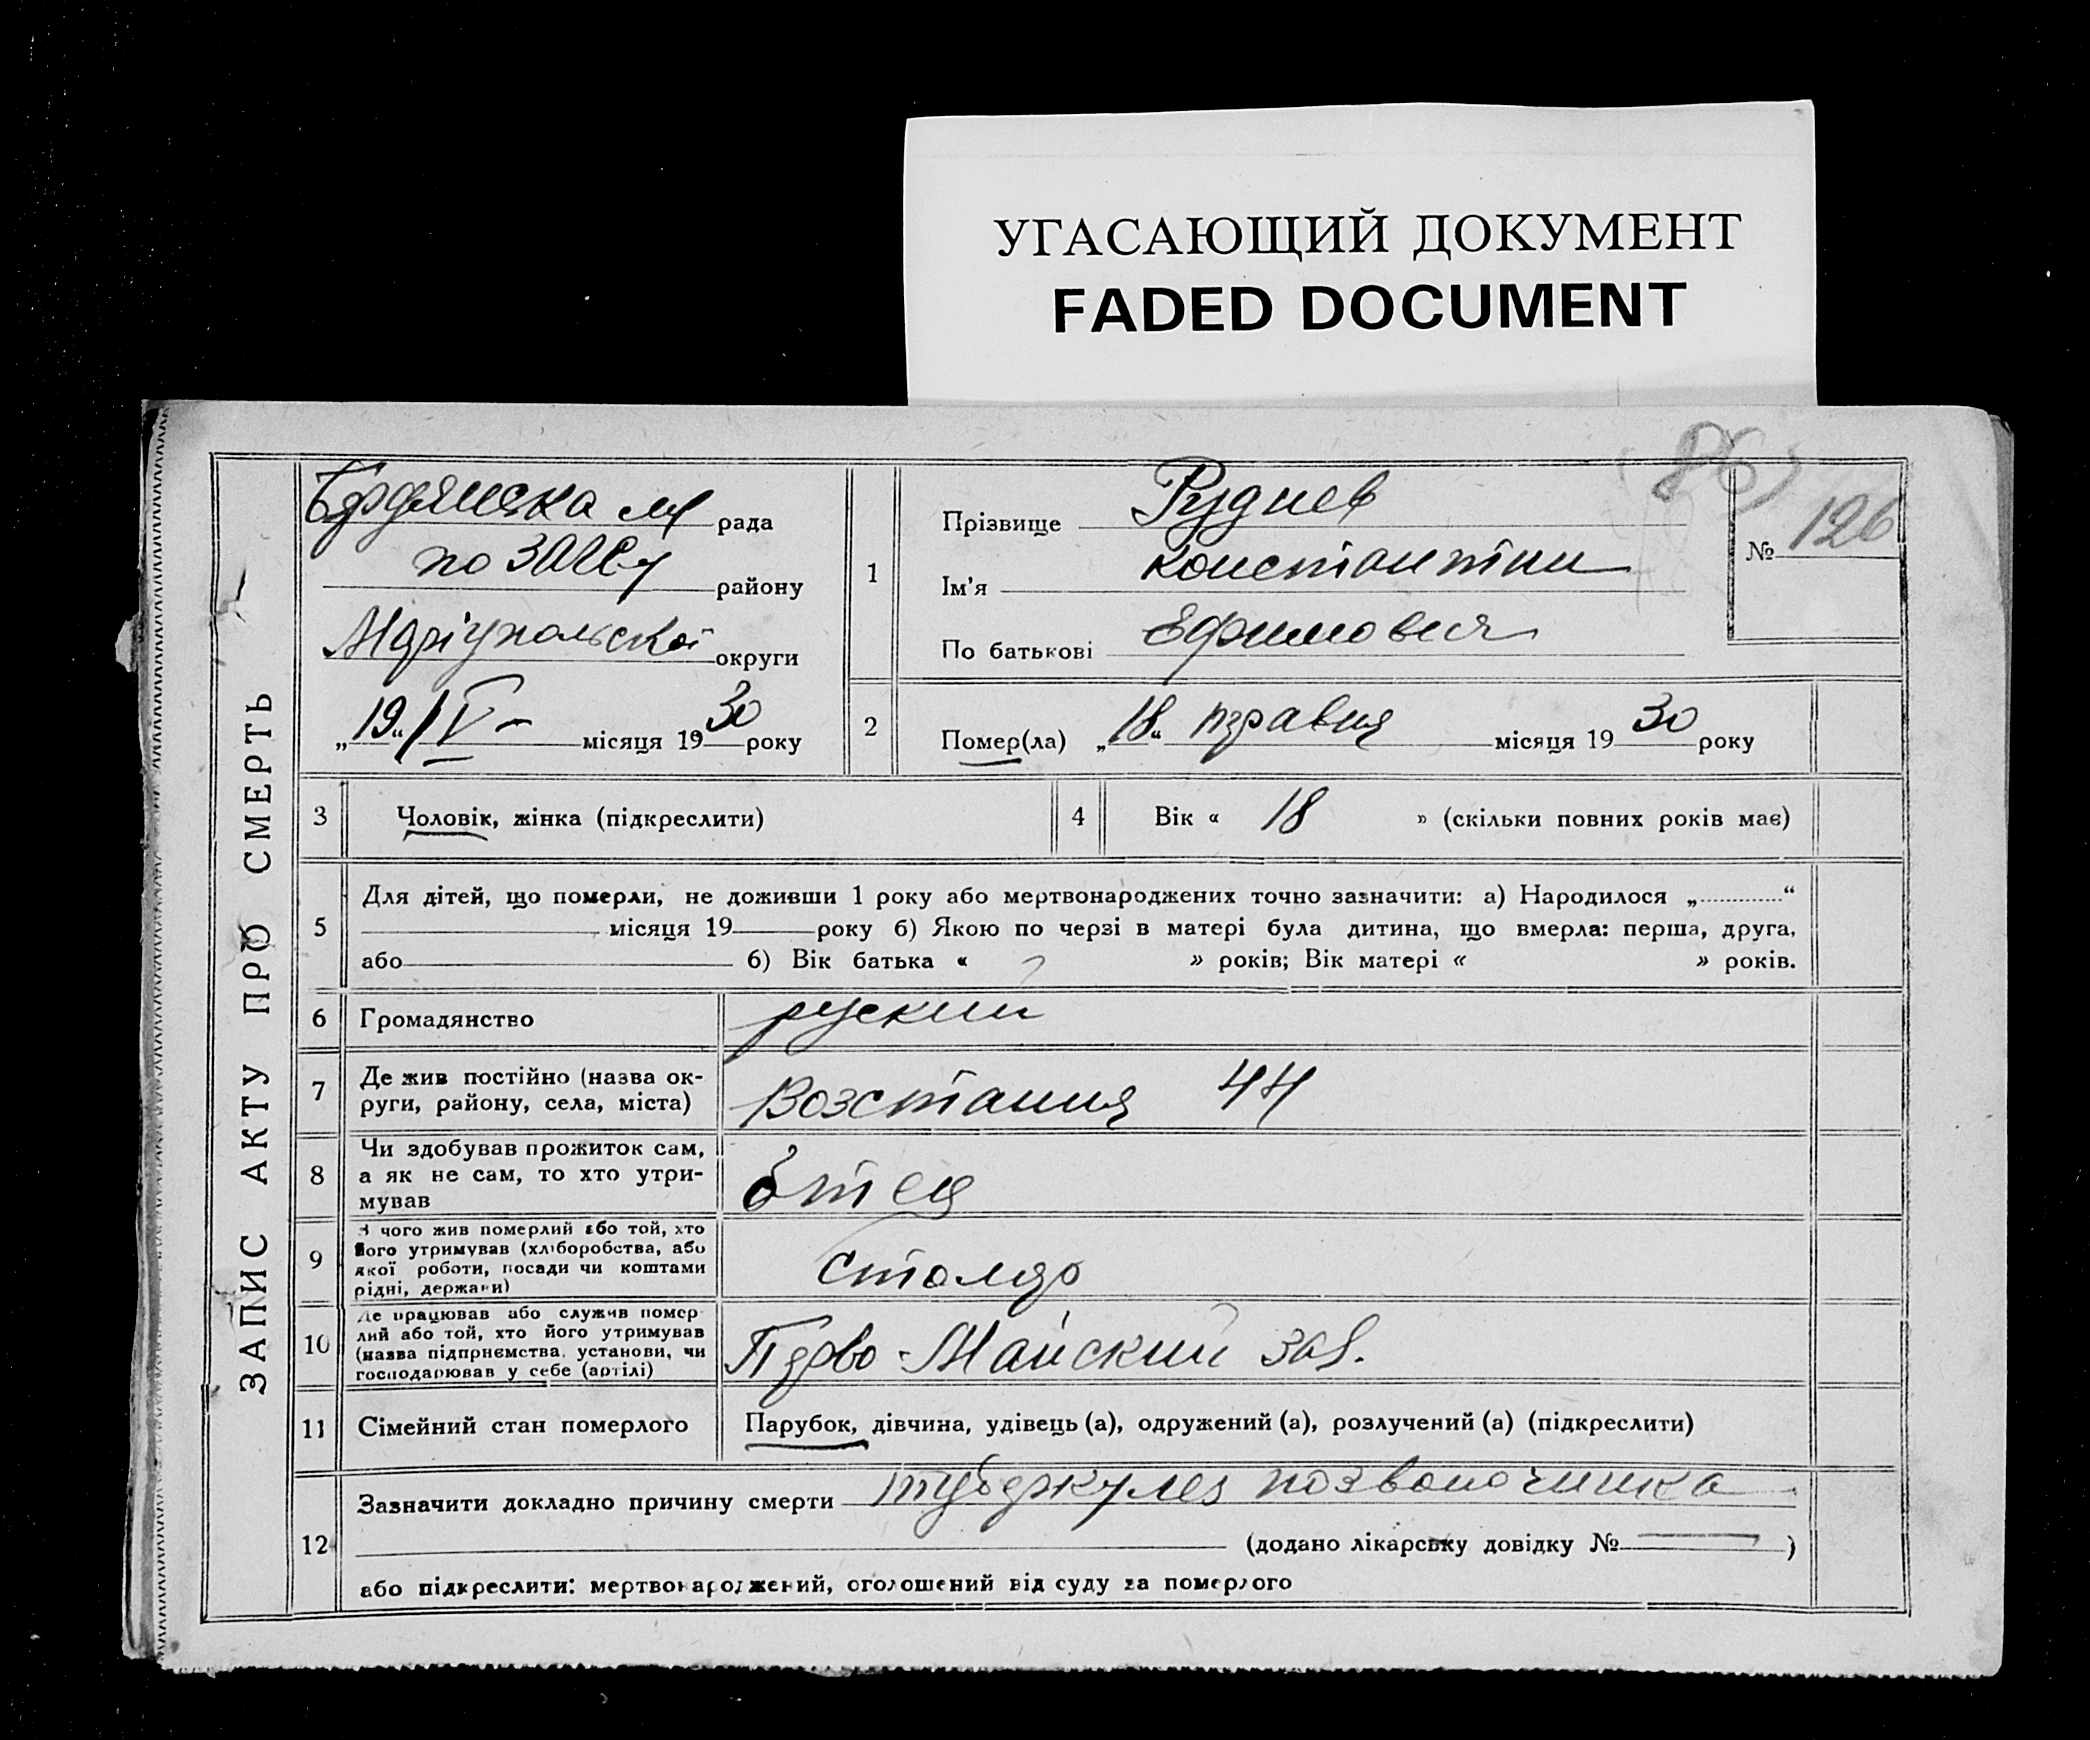 УГАСАЮЩИЙ ДОКУМЕНТ
FADED DOCUMENT
ЗАПИС АКТУ ПРО СМЕРТЬ
Бердянська м рада
по ЗАГСу району
Маріупольскої округи
„19“ / V – місяця 1930 року
1
Прізвище Руднев
Ім'я Константин
По батькові Ефимович
№ 126
86
2
Помер(ла) „18“ травня місяця 1930 року
3 Чоловік, жінка (підкреслити)
4 Вік « 18 » (скільки повних років має)
5 Для дітей, що померли, не доживши 1 року або мертвонароджених точно зазначити: а) Народилося „ “
місяця 19 року б) Якою по черзі в матері була дитина, що вмерла: перша, друга,
або б) Вік батька « » років; Вік матері « » років.
6 Громадянство руский
7 Де жив постійно (назва ок-
руги, району, села, міста) Возстания 44
8 Чи здобував прожиток сам,
а як не сам, то хто утри-
мував Отец
9 З чого жив померлий або той, хто
його утримував (хліборобства, або
якої роботи, посади чи коштами
рідні, держави) столяр
10 Де працював або служив помер-
лий або той, хто його утримував
(назва підприємства, установи, чи
господарював у себе (артілі) Перво-Майский зав.
11 Сімейний стан померлого Парубок, дівчина, удівець (а), одружений (а), розлучений (а) (підкреслити)
12 Зазначити докладно причину смерти туберкулез позвоночника
(додано лікарську довідку № — )
або підкреслити: мертвонароджений, оголошений від суду за померлого